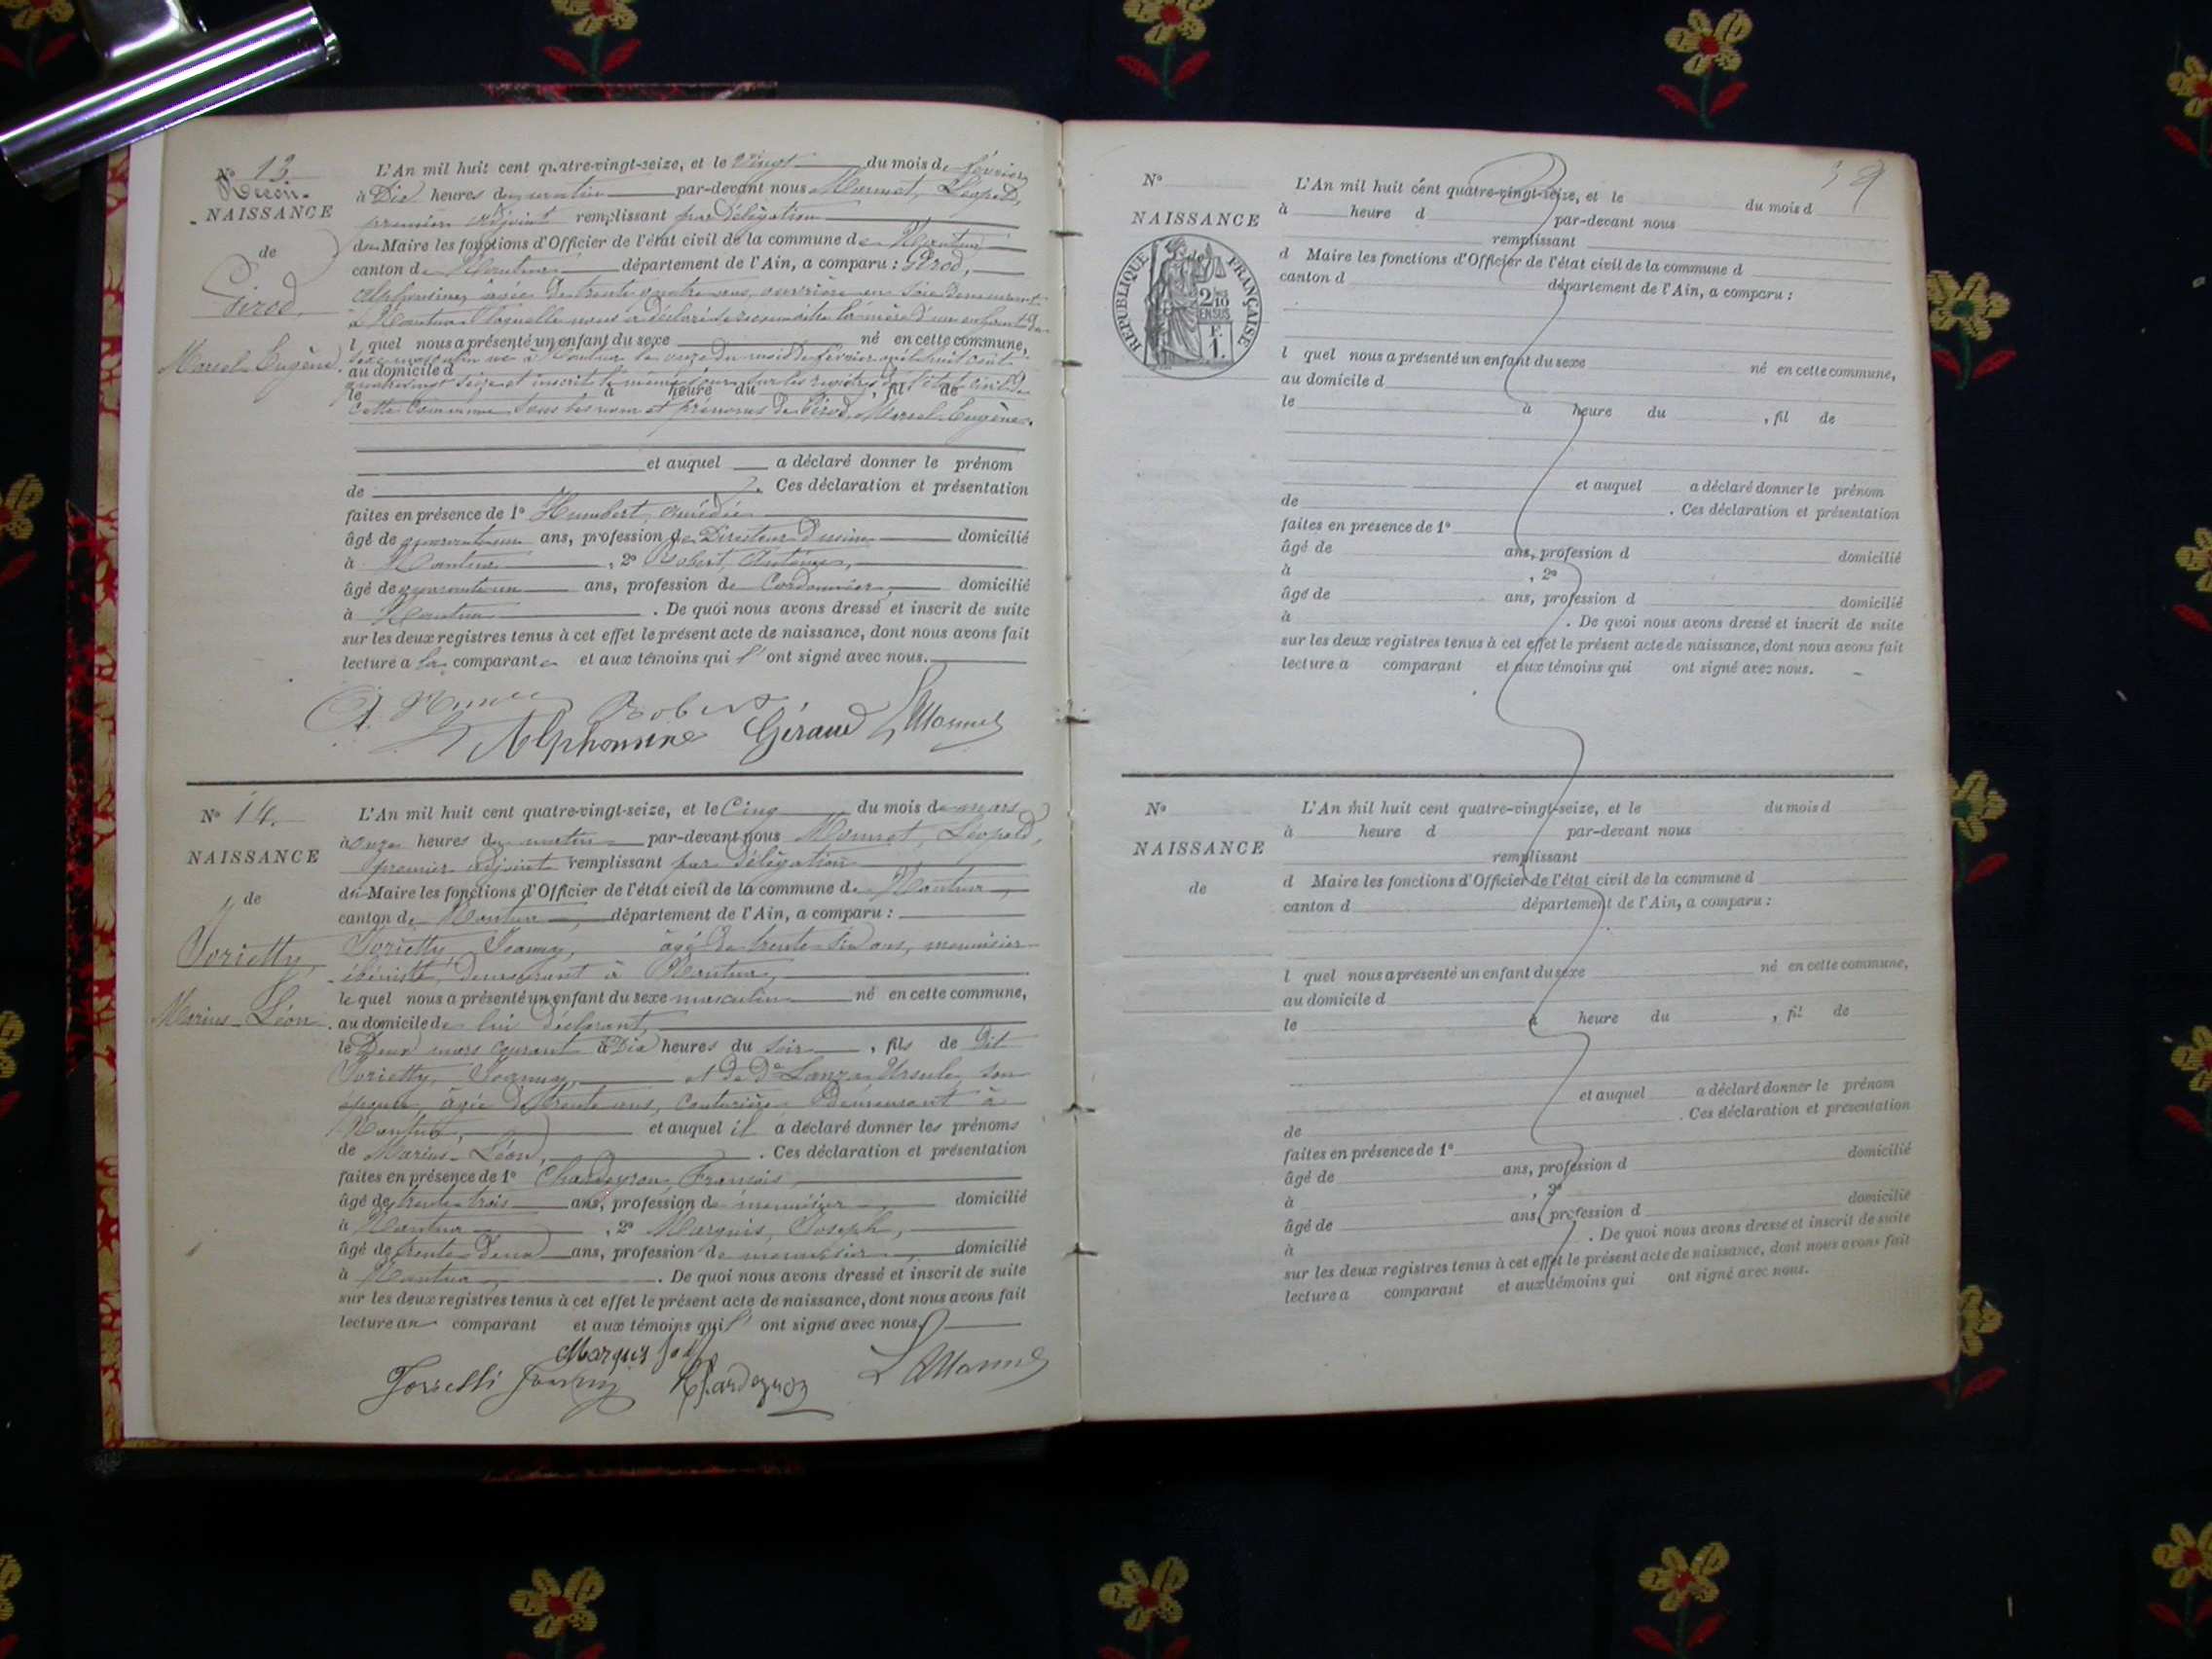 N° 13
Recon-
NAISSANCE
de
Girod,
Marcel-Eugène.
L'An mil huit cent quatre-vingt-seize, et le Vingt du mois de février
à Dix heures du matin par-devant nous Monnet, Léopold,
premier adjoint remplissant par délégation
du Maire les fonctions d'Officier de l'état civil de la commune de Nantua
canton de Nantua département de l'Ain, a comparu : Girod,
Alphonsine, âgée de trente quatre ans, ouvrière en soie demeurant
à Nantua laquelle nous a déclaré se reconnaître la mère d'un enfant du
l quel nous a présenté un enfant du sexe né en cette commune,
sexe masculin né à Nantua le onze du mois de février mil huit cent
au domicile d
quatre vingt seize et inscrit le même jour sur les registres de l'état civil de
le à heure du , fil de
cette commune sous les nom et prénoms de Girod, Marcel-Eugène.
et auquel a déclaré donner le prénom
de . Ces déclaration et présentation
faites en présence de 1° Humbert, Amédée
âgé de ans, profession de Directeur d'usine domicilié
à Nantua , 2° Robert, Antoine,
âgé de quarante un ans, profession de Cordonnier, domicilié
à Nantua . De quoi nous avons dressé et inscrit de suite
sur les deux registres tenus à cet effet le présent acte de naissance, dont nous avons fait
lecture a la comparante et aux témoins qui l' ont signé avec nous.
Robert
Alphonsine Géraud LMonnet
N° 14.
NAISSANCE
de
Jorietty,
Marius-Léon.
L'An mil huit cent quatre-vingt-seize, et le Cinq du mois de mars
à onze heures du matin par-devant nous Monnet, Léopold,
premier adjoint remplissant par délégation
du Maire les fonctions d'Officier de l'état civil de la commune de Nantua,
canton de Nantua, département de l'Ain, a comparu :
Jorietty, Joanny, âgé de trente-six ans, menuisier-
ébéniste, demeurant à Nantua,
le quel nous a présenté un enfant du sexe masculin né en cette commune,
au domicile de lui déclarant,
le Deux mars courant à Dix heures du soir , fils de dit
Jorietty, Joanny, et de De Lanza Ursule, son
épouse, âgée de trente ans, couturière, demeurant à
Nantua, et auquel il a déclaré donner les prénoms
de Marius-Léon, . Ces déclaration et présentation
faites en présence de 1° Chardeyron, François,
âgé de trente trois ans, profession de menuisier domicilié
à Nantua , 2° Marquis, Joseph,
âgé de trente-deux ans, profession de menuisier, domicilié
à Nantua, . De quoi nous avons dressé et inscrit de suite
sur les deux registres tenus à cet effet le présent acte de naissance, dont nous avons fait
lecture au comparant et aux témoins qui l' ont signé avec nous.
Marquis
Chardeyron LMonnet
N°
NAISSANCE
RÉPUBLIQUE FRANÇAISE
2/10
EN SUS
F.
1.
L'An mil huit cent quatre-vingt-seize, et le du mois d
à heure d par-devant nous
remplissant
d Maire les fonctions d'Officier de l'état civil de la commune d
canton d département de l'Ain, a comparu :
l quel nous a présenté un enfant du sexe né en cette commune,
au domicile d
le à heure du , fil de
et auquel a déclaré donner le prénom
de . Ces déclaration et présentation
faites en présence de 1°
âgé de ans, profession d domicilié
à , 2°
âgé de ans, profession d domicilié
à . De quoi nous avons dressé et inscrit de suite
sur les deux registres tenus à cet effet le présent acte de naissance, dont nous avons fait
lecture a comparant et aux témoins qui ont signé avec nous.
N°
NAISSANCE
de
L'An mil huit cent quatre-vingt-seize, et le du mois d
à heure d par-devant nous
remplissant
d Maire les fonctions d'Officier de l'état civil de la commune d
canton d département de l'Ain, a comparu :
l quel nous a présenté un enfant du sexe né en cette commune,
au domicile d
le à heure du , fil de
et auquel a déclaré donner le prénom
de . Ces déclaration et présentation
faites en présence de 1°
âgé de ans, profession d domicilié
à , 2°
âgé de ans, profession d domicilié
à . De quoi nous avons dressé et inscrit de suite
sur les deux registres tenus à cet effet le présent acte de naissance, dont nous avons fait
lecture a comparant et aux témoins qui ont signé avec nous.